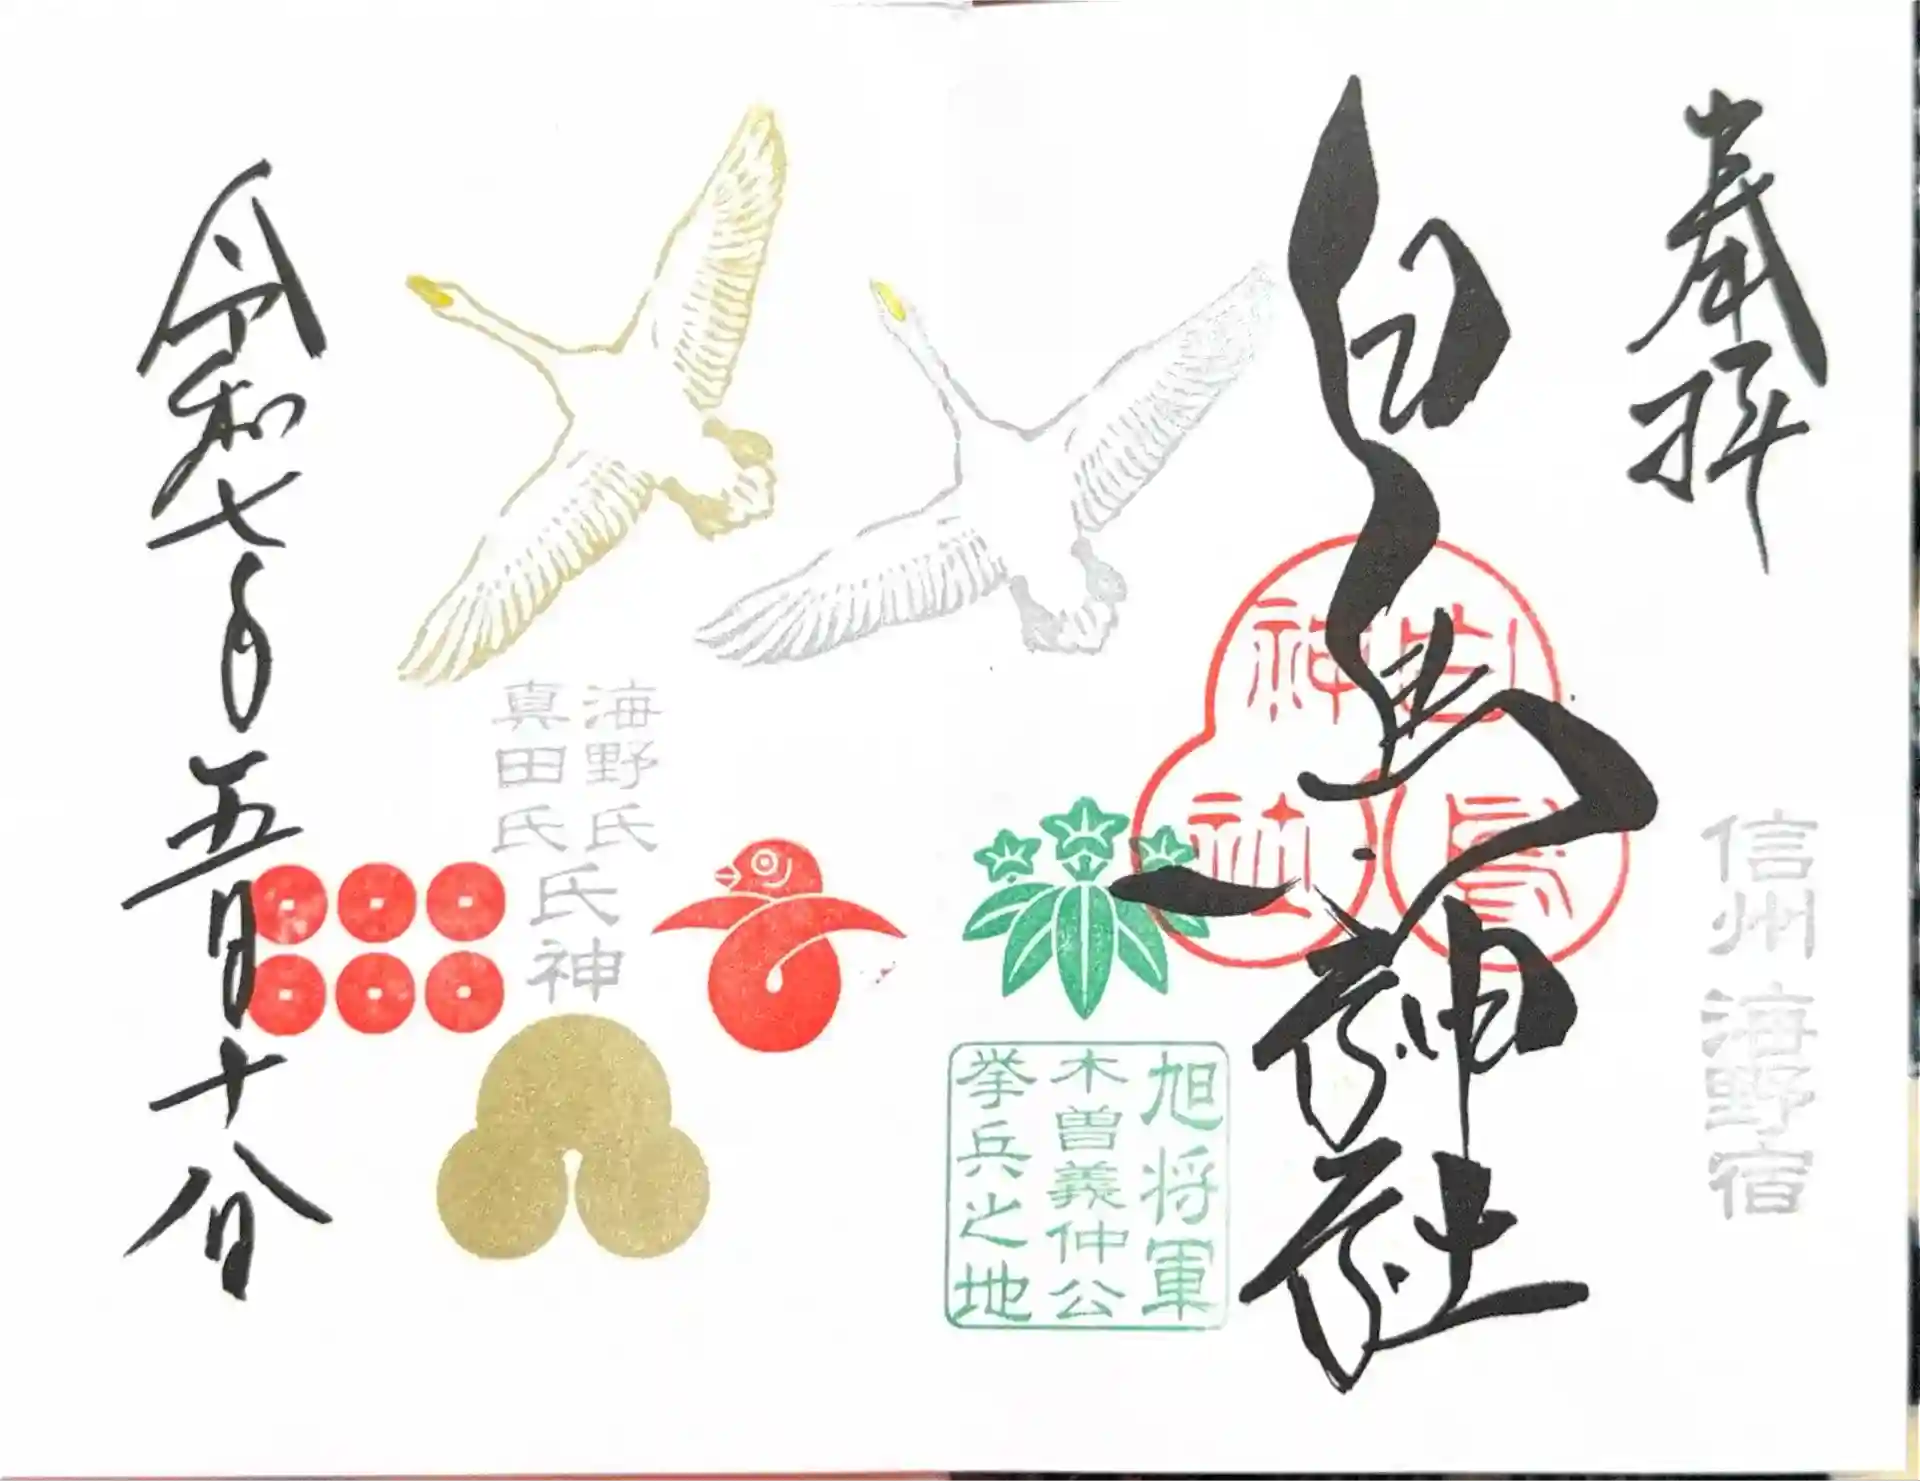 奉拝
信州 海野宿
白鳥神社
白鳥
神社
旭将軍
木曽義仲公
挙兵之地
海野氏
真田氏
氏神
令和七年五月十八日